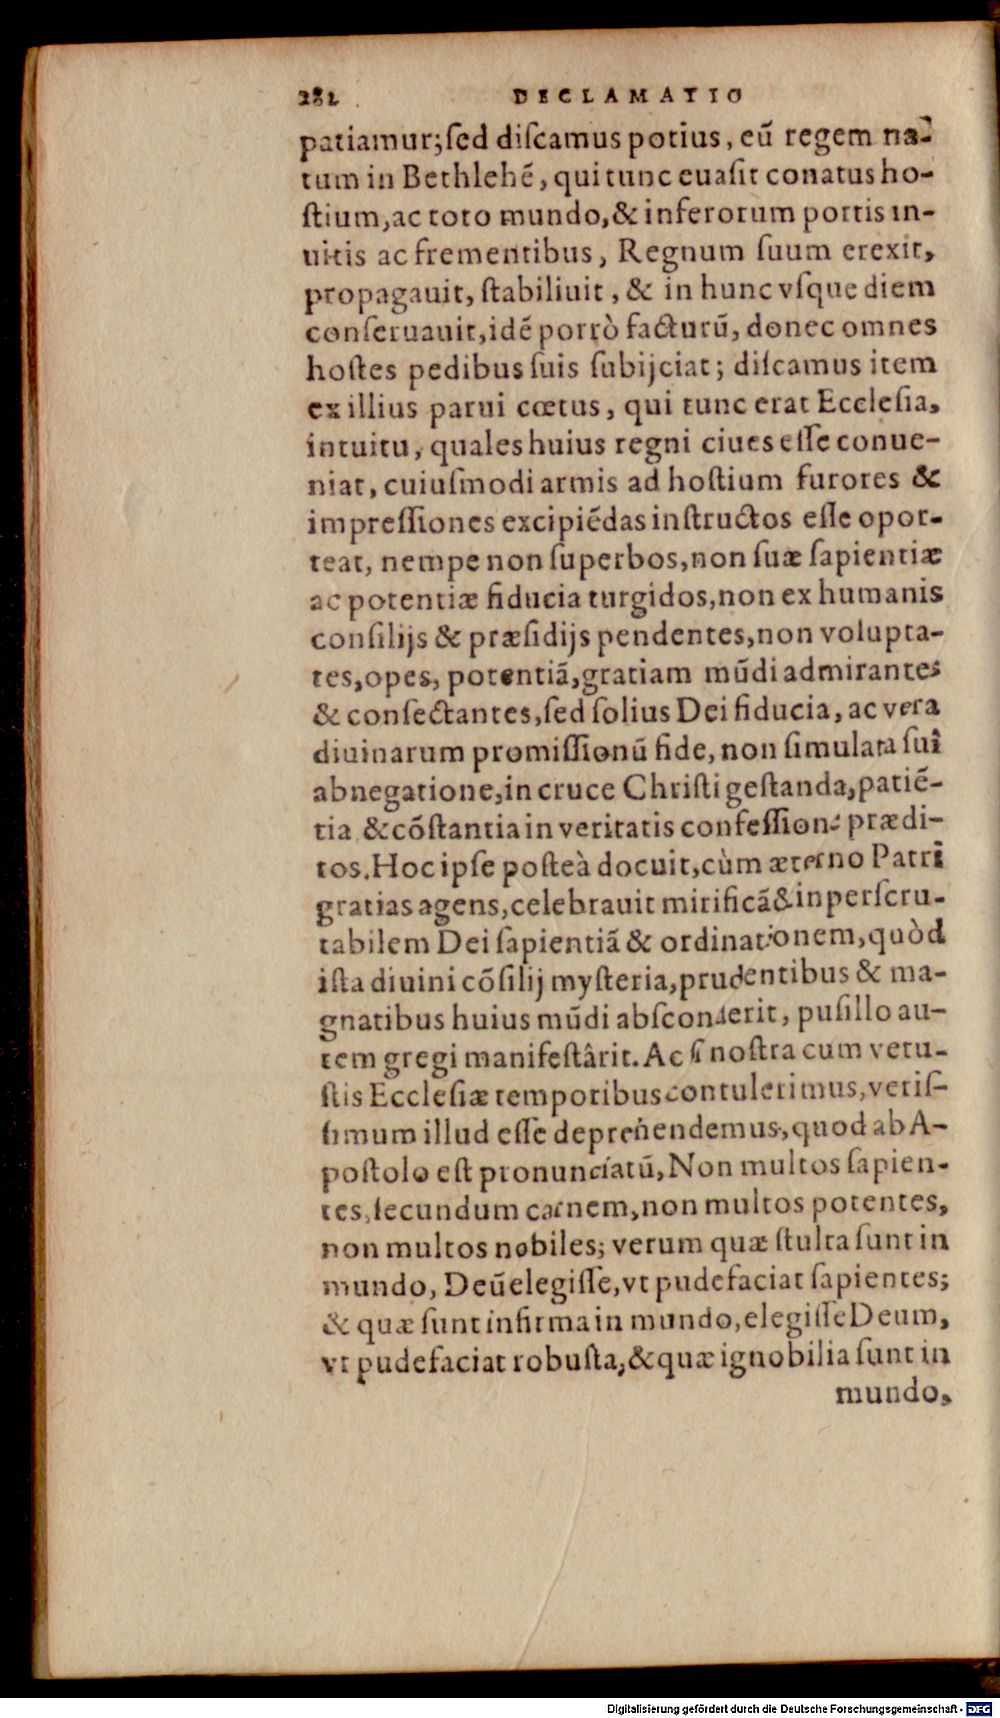 282 DECLAMATIO
patiamur; ſed diſcamus potius, eũ regem na-
tum in Bethlehẽ, qui tunc euaſit conatus ho-
ſtium, ac toto mundo, & inferorum portis in-
uitis ac frementibus, Regnum ſuum erexit,
propagauit, ſtabiliuit, & in hunc vſque diem
conſeruauit, idẽ porrò facturũ, donec omnes
hoſtes pedibus ſuis ſubijciat; diſcamus item
ex illius parui cœtus, qui tunc erat Eccleſia,
intuitu, quales huius regni ciues eſſe conue-
niat, cuiuſmodi armis ad hoſtium furores &
impreſſiones excipiẽdas inſtructos eſſe opor-
teat, nempe non ſuperbos, non ſuæ ſapientiæ
ac potentiæ fiducia turgidos, non ex humanis
conſilijs & præſidijs pendentes, non volupta-
tes, opes, potentiã, gratiam mũdi admirantes
& conſectantes, ſed ſolius Dei fiducia, ac vera
diuinarum promiſſionũ fide, non ſimulata ſui
abnegatione, in cruce Chriſti geſtanda, patiẽ-
tia & cõſtantia in veritatis confeſſione prædi-
tos. Hoc ipſe poſteà docuit, cùm æterno Patri
gratias agens, celebrauit mirificã & inperſcru-
tabilem Dei ſapientiã & ordinationem, quòd
iſta diuini cõſilij myſteria, prudentibus & ma-
gnatibus huius mũdi abſconderit, puſillo au-
tem gregi manifeſtârit. Ac ſi noſtra cum vetu-
ſtis Eccleſiæ temporibus contulerimus, veriſ-
ſimum illud eſſe deprehendemus, quod ab A-
poſtolo eſt pronunciatũ, Non multos ſapien-
tes, ſecundum carnem, non multos potentes,
non multos nobiles; verum quæ ſtulta ſunt in
mundo, Deũ elegiſſe, vt pudefaciat ſapientes;
& quæ ſunt infirma in mundo, elegiſſe Deum,
vt pudefaciat robuſta, & quæ ignobilia ſunt in
mundo,
Digitalisierung gefördert durch die Deutsche Forschungsgemeinschaft - DFG